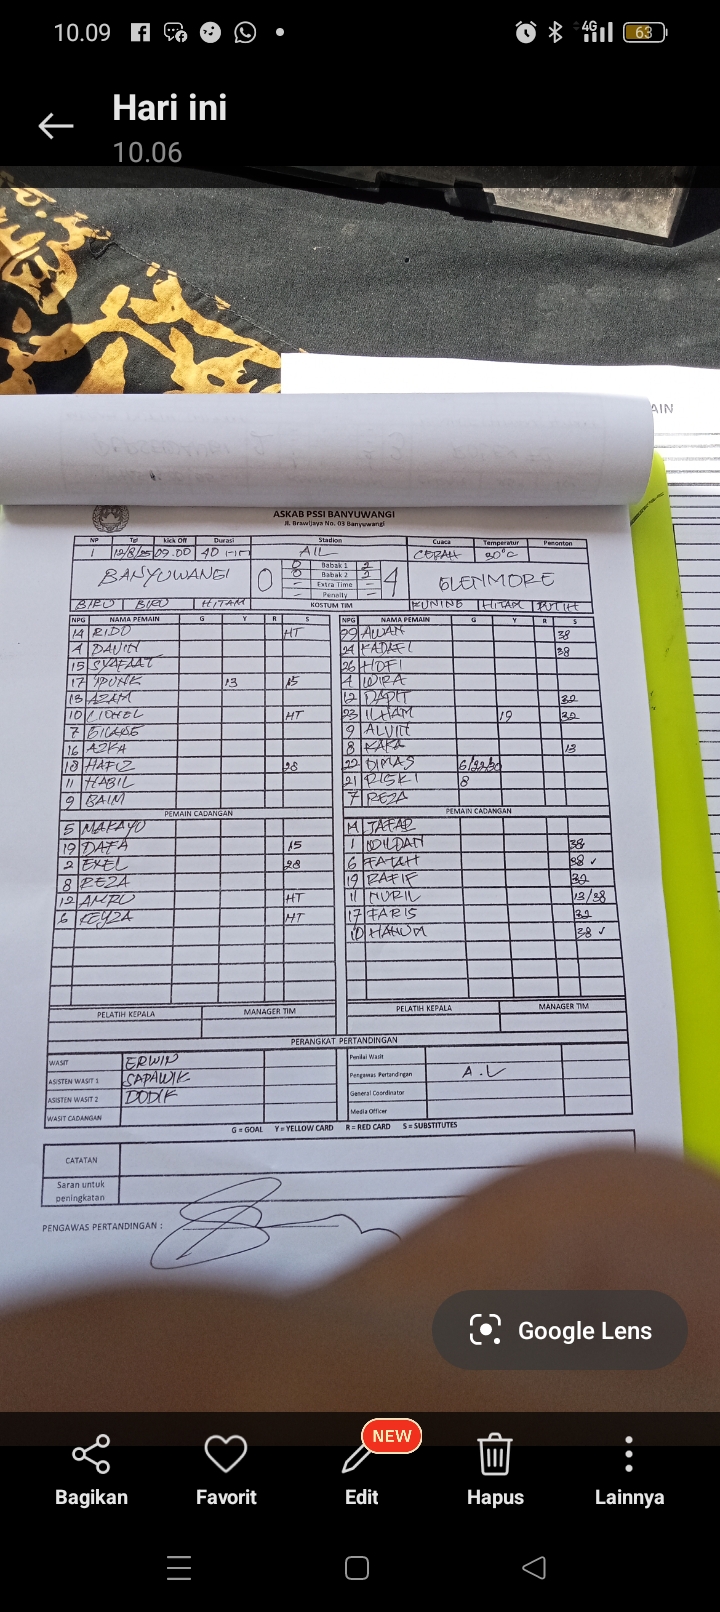 10.09 4G 63
Hari ini
10.06
AIN
ASKAB PSSI BANYUWANGI
Jl. Brawijaya No. 03 Banyuwangi
NP Tgl kick Off Durasi Stadion Cuaca Temperatur Penonton
1 12/8/25 09.00 40 AIL CERAH 30°C
BANYUWANGI 0 4 GLENMORE
0 Babak 1 2
0 Babak 2 2
– Extra Time –
– Penalty –
BIRU BIRU HITAM KOSTUM TIM KUNING HITAM PUTIH
NPG NAMA PEMAIN G Y R S NPG NAMA PEMAIN G Y R S
14 RIDO HT 99 AWAN 38
4 DAVIN 24 KADAFI 38
15 SYAFAAT 26 HOFI
17 IPUNK 13 15 4 WIRA
13 AZAM 12 DAPIT 32
10 LIONEL HT 23 ILHAM 19 32
7 9 ALVIN
16 AZKA 8 KAKA 13
18 HAFIZ 28 22 DIMAS 6/22/30
11 HABIL 21 RISKI 8
9 BAIM 7 REZA
PEMAIN CADANGAN PEMAIN CADANGAN
5 MAKAYO 14 JAFAR
19 DAFA 15 1 WILDAN 38
2 EXEL 28 6 FATAH 38 ✓
8 REZA 19 RAFIF 32
12 HT 11 NURIL 13/38
6 KEYZA HT 17 FARIS 32
10 HAKUM 38 ✓
PELATIH KEPALA MANAGER TIM PELATIH KEPALA MANAGER TIM
PERANGKAT PERTANDINGAN
WASIT ERWIN Penilai Wasit
ASISTEN WASIT 1 SAPAWIK Pengawas Pertandingan A.L
ASISTEN WASIT 2 DODIK General Coordinator
WASIT CADANGAN Media Officer
G = GOAL Y = YELLOW CARD R = RED CARD S = SUBSTITUTES
CATATAN
Saran untuk
peningkatan
PENGAWAS PERTANDINGAN :
Google Lens
NEW
Bagikan Favorit Edit Hapus Lainnya